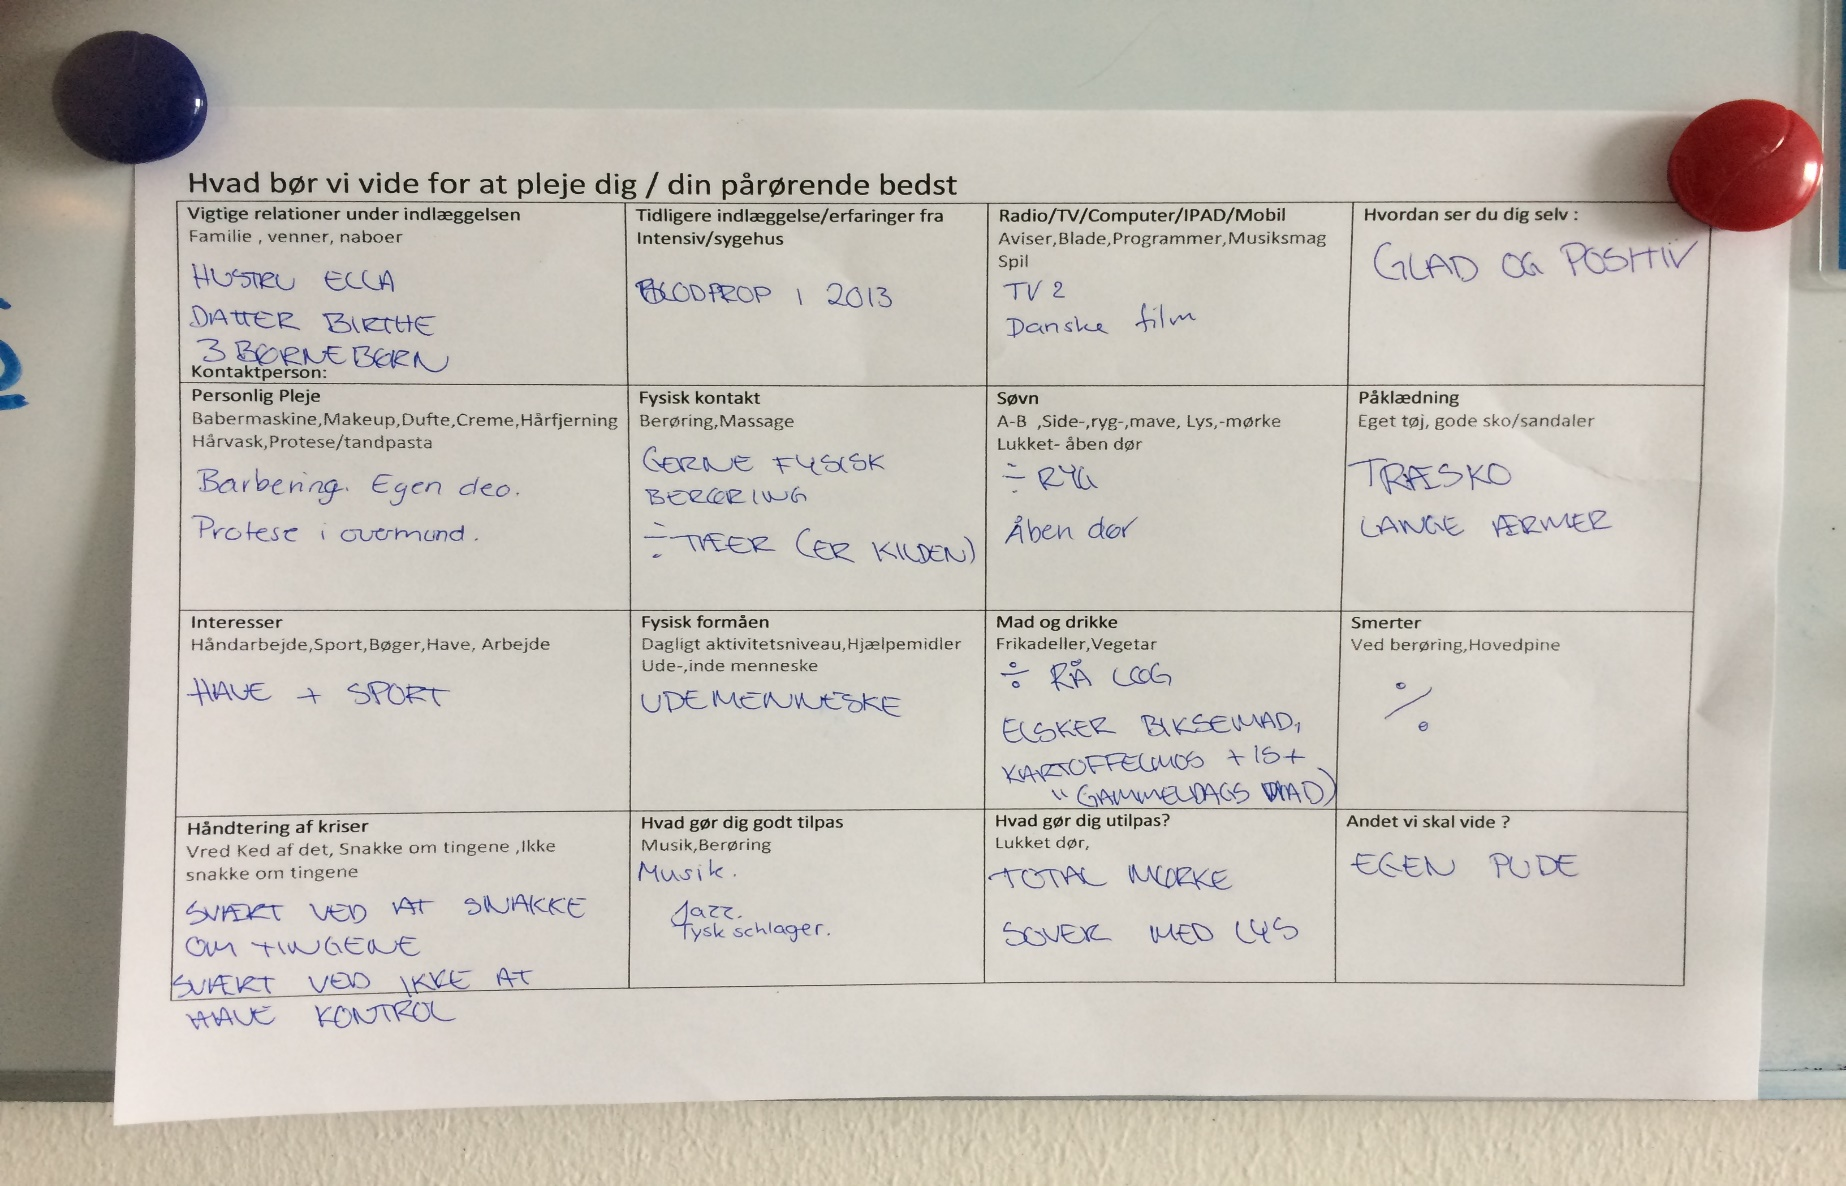 Hvad bør vi vide for at pleje dig / din pårørende bedst
Vigtige relationer under indlæggelsen
Familie , venner, naboer
HUSTRU ELLA
DATTER BIRTHE
3 BØRNEBØRN
Kontaktperson:
Tidligere indlæggelse/erfaringer fra
Intensiv/sygehus
BLODPROP I 2013
Radio/TV/Computer/IPAD/Mobil
Aviser,Blade,Programmer,Musiksmag
Spil
TV 2
Danske film
Hvordan ser du dig selv :
GLAD OG POSITIV
Personlig Pleje
Babermaskine,Makeup,Dufte,Creme,Hårfjerning
Hårvask,Protese/tandpasta
Barbering. Egen deo.
Protese i overmund.
Fysisk kontakt
Berøring,Massage
GERNE FYSISK
BERØRING
÷ TÆER (ER KILDEN)
Søvn
A-B ,Side-,ryg-,mave, Lys,-mørke
Lukket- åben dør
÷ RYG
Åben dør
Påklædning
Eget tøj, gode sko/sandaler
TRÆSKO
LANGE ÆRMER
Interesser
Håndarbejde,Sport,Bøger,Have, Arbejde
HAVE + SPORT
Fysisk formåen
Dagligt aktivitetsniveau,Hjælpemidler
Ude-,inde menneske
UDEMENNESKE
Mad og drikke
Frikadeller,Vegetar
÷ RÅ LØG
ELSKER BIKSEMAD,
KARTOFFELMOS + IS +
"GAMMELDAGS MAD)
Smerter
Ved berøring,Hovedpine
%
Håndtering af kriser
Vred Ked af det, Snakke om tingene ,Ikke
snakke om tingene
SVÆRT VED AT SNAKKE
OM TINGENE
SVÆRT VED IKKE AT
HAVE KONTROL
Hvad gør dig godt tilpas
Musik,Berøring
Musik.
Jazz.
Tysk schlager.
Hvad gør dig utilpas?
Lukket dør,
TOTAL MØRKE
SOVER MED LYS
Andet vi skal vide ?
EGEN PUDE